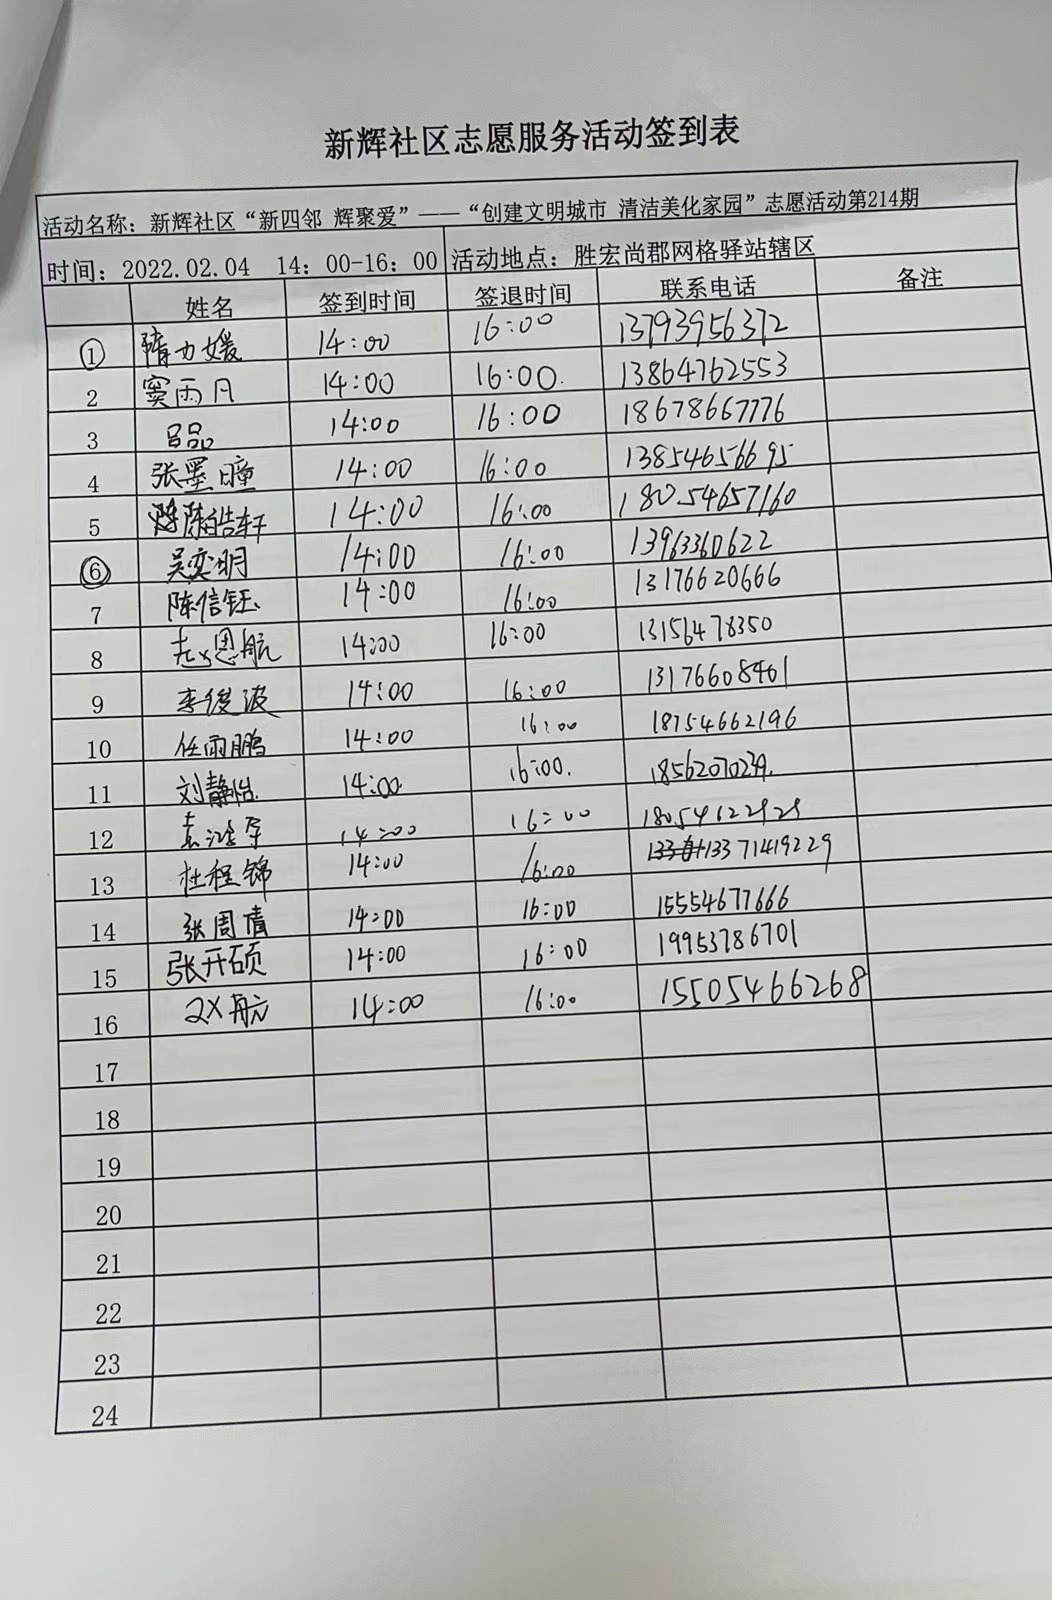 新辉社区志愿服务活动签到表
活动名称：新辉社区“新四邻 辉聚爱”——“创建文明城市 清洁美化家园”志愿活动第214期
时间：2022.02.04 14：00-16：00 活动地点：胜宏尚郡网格驿站辖区
姓名 签到时间 签退时间 联系电话 备注
1 隋力媛 14:00 16:00 13793956372
2 窦雨凡 14:00 16:00. 13864762553
3 吕品 14:00 16:00 18678667776
4 张墨瞳 14:00 16:00 13854656695
5 陈皓轩 14:00 16:00 18054657160
6 吴奕明 14:00 16:00 13963360622
7 陈信钰 14:00 16:00 13176620666
8 赵恩航 14:00 16:00 13156478350
9 李俊波 14:00 16:00 13176608401
10 任雨鹏 14:00 16:00 18754662196
11 刘静怡 14:00 16:00.
12 14:00 16:00 18054622929
13 杜程锦 14:00 16:00 13371419229
14 张周倩 14:00 16:00 15554677666
15 张开硕 14:00 16:00 19953786701
16 14:00 16:00 15505466268
17
18
19
20
21
22
23
24